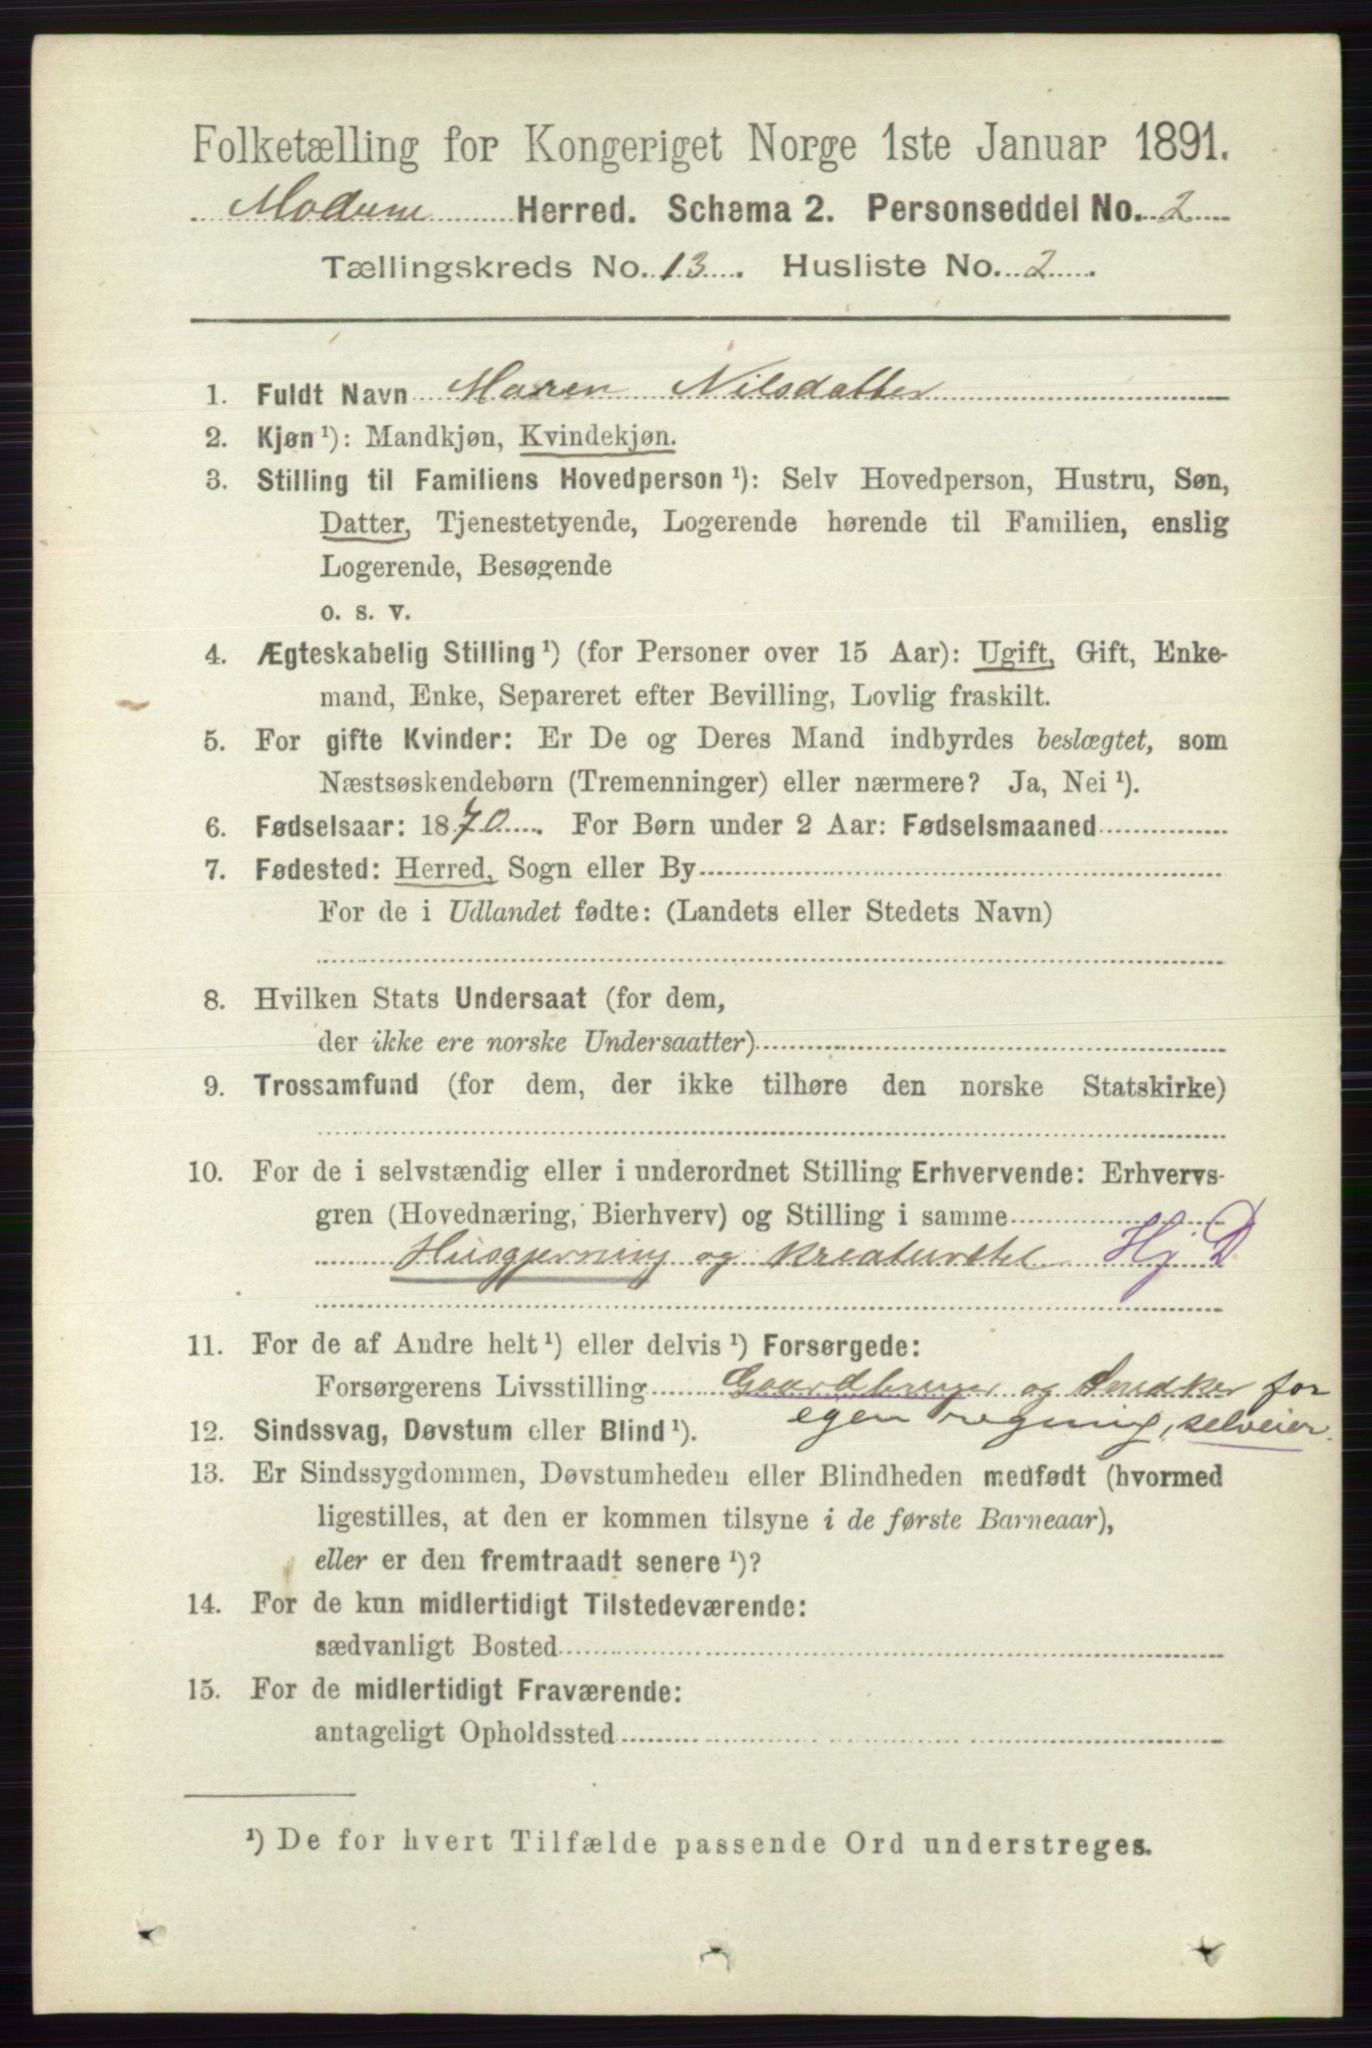 Folketælling for Kongeriget Norge 1ste Januar 1891.
Modum Herred. Schema 2. Personseddel No. 2
Tællingskreds No. 13. Husliste No. 2.
1. Fuldt Navn Maren Nilsdatter
2. Kjøn ¹): Mandkjøn, Kvindekjøn.
3. Stilling til Familiens Hovedperson ¹): Selv Hovedperson, Hustru, Søn,
Datter, Tjenestetyende, Logerende hørende til Familien, enslig
Logerende, Besøgende
o. s. v.
4. Ægteskabelig Stilling ¹) (for Personer over 15 Aar): Ugift, Gift, Enke-
mand, Enke, Separeret efter Bevilling, Lovlig fraskilt.
5. For gifte Kvinder: Er De og Deres Mand indbyrdes beslægtet, som
Næstsøskendebørn (Tremenninger) eller nærmere? Ja, Nei ¹).
6. Fødselsaar: 1870. For Børn under 2 Aar: Fødselsmaaned
7. Fødested: Herred, Sogn eller By
For de i Udlandet fødte: (Landets eller Stedets Navn)
8. Hvilken Stats Undersaat (for dem,
der ikke ere norske Undersaatter)
9. Trossamfund (for dem, der ikke tilhøre den norske Statskirke)
10. For de i selvstændig eller i underordnet Stilling Erhvervende: Erhvervs-
gren (Hovednæring, Bierhverv) og Stilling i samme
Husgjerning og kreaturstel Hj D
11. For de af Andre helt ¹) eller delvis ¹) Forsørgede:
Forsørgerens Livsstilling Gaardbruger og Snedker for
egen regning, selveier.
12. Sindssvag, Døvstum eller Blind ¹).
13. Er Sindssygdommen, Døvstumheden eller Blindheden medfødt (hvormed
ligestilles, at den er kommen tilsyne i de første Barneaar),
eller er den fremtraadt senere ¹)?
14. For de kun midlertidigt Tilstedeværende:
sædvanligt Bosted
15. For de midlertidigt Fraværende:
antageligt Opholdssted
¹) De for hvert Tilfælde passende Ord understreges.